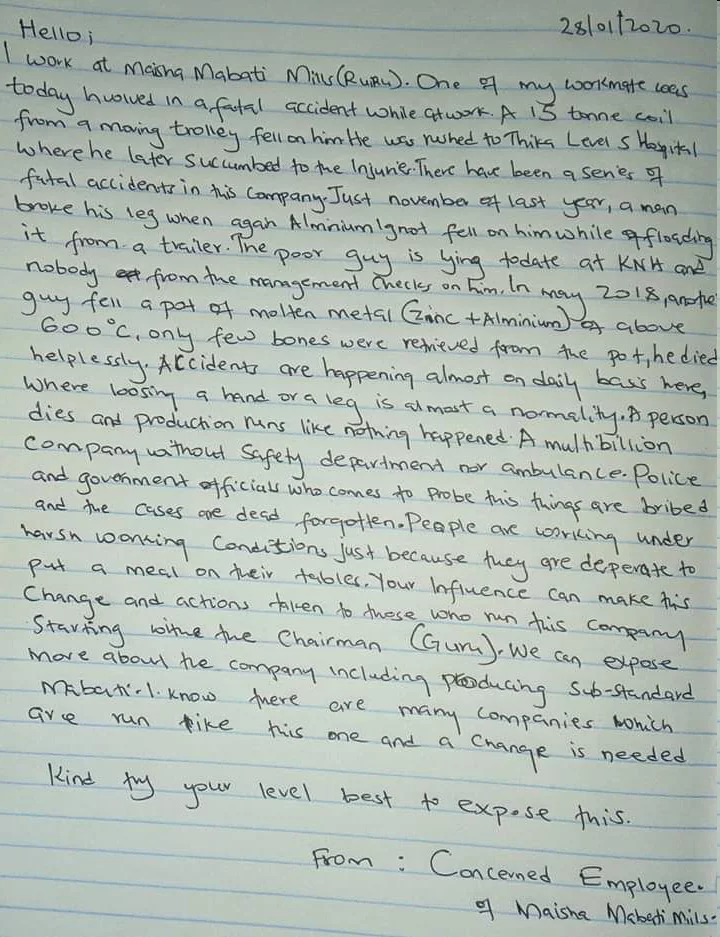 28/01/2020.
Hello;
I work at Maisha Mabati Mills (RUIRU). One of my workmate was
today Invoved in a fatal accident while at work. A 15 tonne coil
from a moving trolley fell on him. He was rushed to Thika Level 5 Hospital
where he later succumbed to the Injuries. There have been a series of
fatal accidents in this Company. Just november of last year, a man
broke his leg when again Alminium Ignot fell on him while offloading
it from a trailer. The poor guy is lying todate at KNH and
nobody from the management Checks on him. In may 2018, another
guy fell a pot of molten metal (Zinc + Alminium) of above
600°C, only few bones were retrieved from the pot, he died
helplessly. Accidents are happening almost on daily basis here,
where loosing a hand or a leg is almost a normality. A person
dies and production runs like nothing happened. A multibillion
Company without Safety department nor ambulance. Police
and government officials who comes to probe this things are bribed
and the cases are dead forgotten. People are working under
harsh working Conditions just because they are deperate to
put a meal on their tables. Your Influence can make this
Change and actions taken to those who run this company
Starting withe the Chairman (Guru). We can expose
more about the company including producing Sub-standard
Mabati. I know there are many companies which
are run like this one and a change is needed
Kind try your level best to expose this.
From : Concerned Employee.
of Maisha Mabati Mils.